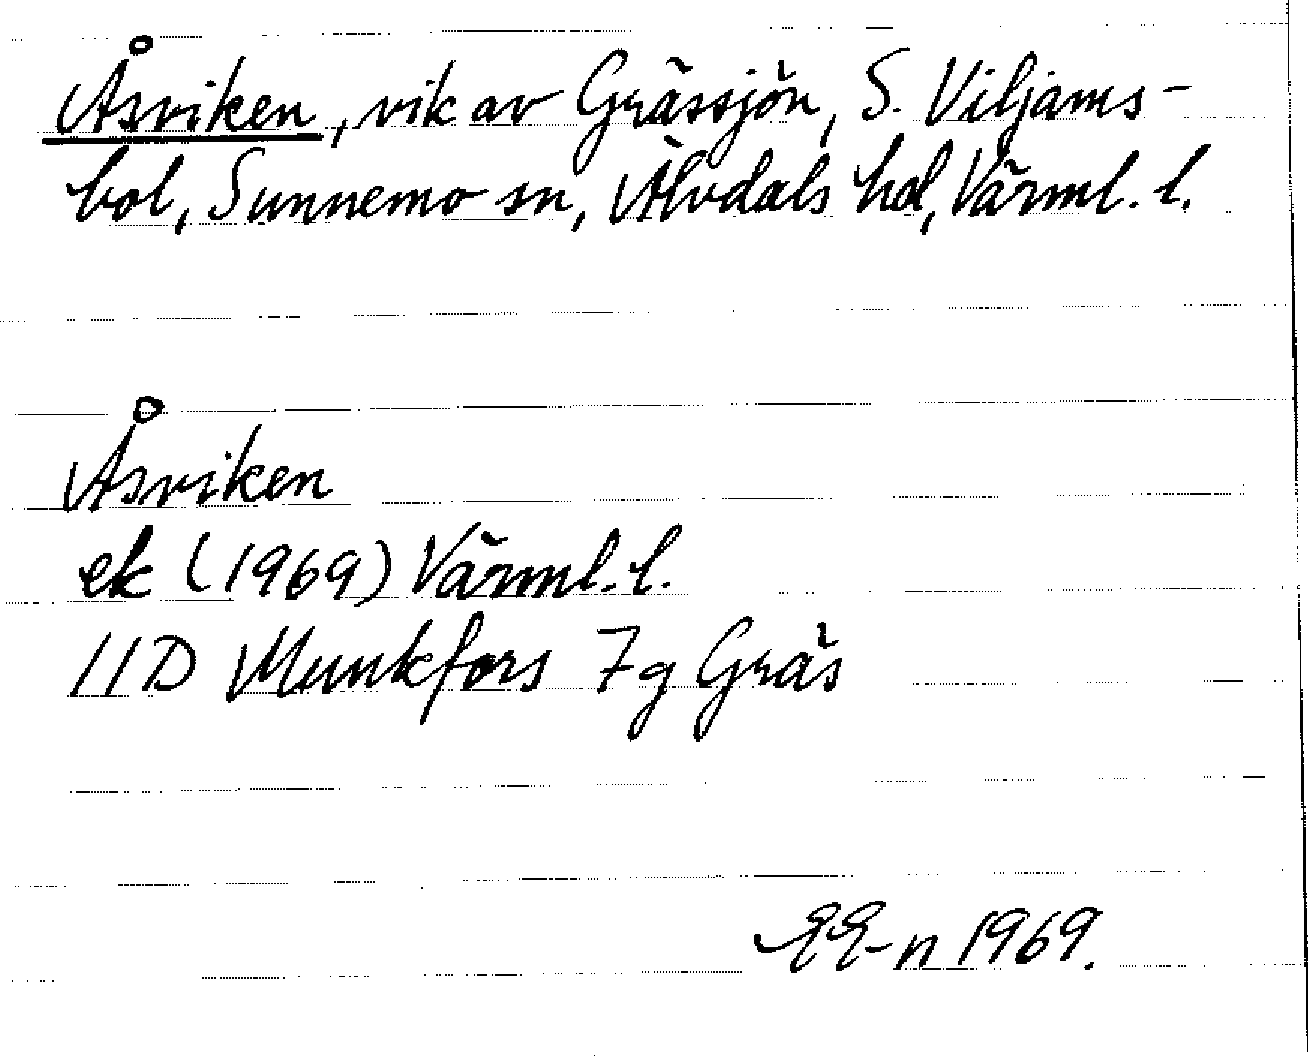 Åsviken, vik av Grässjön, S. Viljams-
bol, Sunnemo sn, Älvdals hd, Värml. l.
Åsviken
ek (1969) Värml. l.
11D Munkfors 7g Gräs
EE-n 1969.